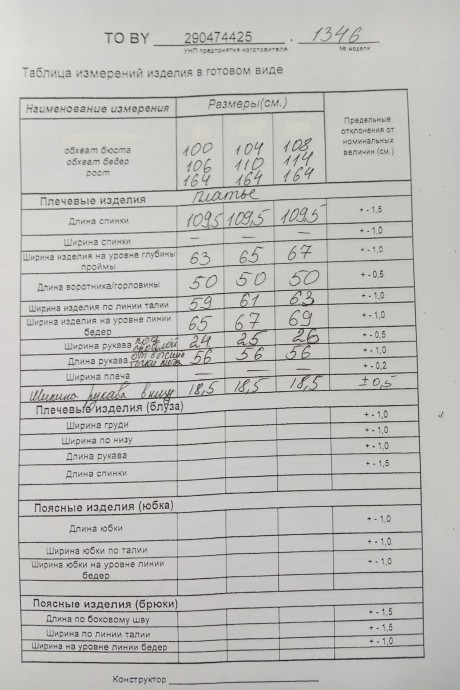 TO BY 290474425 . 1346
УНП предприятия изготовителя № модели
Таблица измерений изделия в готовом виде
Наименование измерения Размеры(см.) Предельные отклонения от номинальных величин (см.)
обхват бюста 100 104 108
обхват бедер 106 110 114
рост 164 164 164
Плечевые изделия платье
Длина спинки 109,5 109,5 109,5 + - 1,5
Ширина спинки — — — + - 1,0
Ширина изделия на уровне глубины проймы 63 65 67 + - 1,0
Длина воротника/горловины 50 50 50 + - 0,5
Ширина изделия по линии талии 59 61 63 + - 1,0
Ширина изделия на уровне линии бедер 65 67 69 + - 1,0
Ширина рукава под проймой 24 25 26 + - 0,5
Длина рукава от высшей точки 56 56 56 + - 1,0
Ширина плеча — — — + - 0,2
Ширина рукава внизу 18,5 18,5 18,5 ±0,5
Плечевые изделия (блуза)
Ширина груди + - 1,0
Ширина по низу + - 1,0
Длина рукава + - 1,0
Длина спинки + - 1,5
Поясные изделия (юбка)
Длина юбки + - 1,0
Ширина юбки по талии + - 1,0
Ширина юбки на уровне линии бедер + - 1,0
Поясные изделия (брюки)
Длина по боковому шву + - 1,5
Ширина по линии талии + - 1,5
Ширина на уровне линии бедер + - 1,0
Конструктор